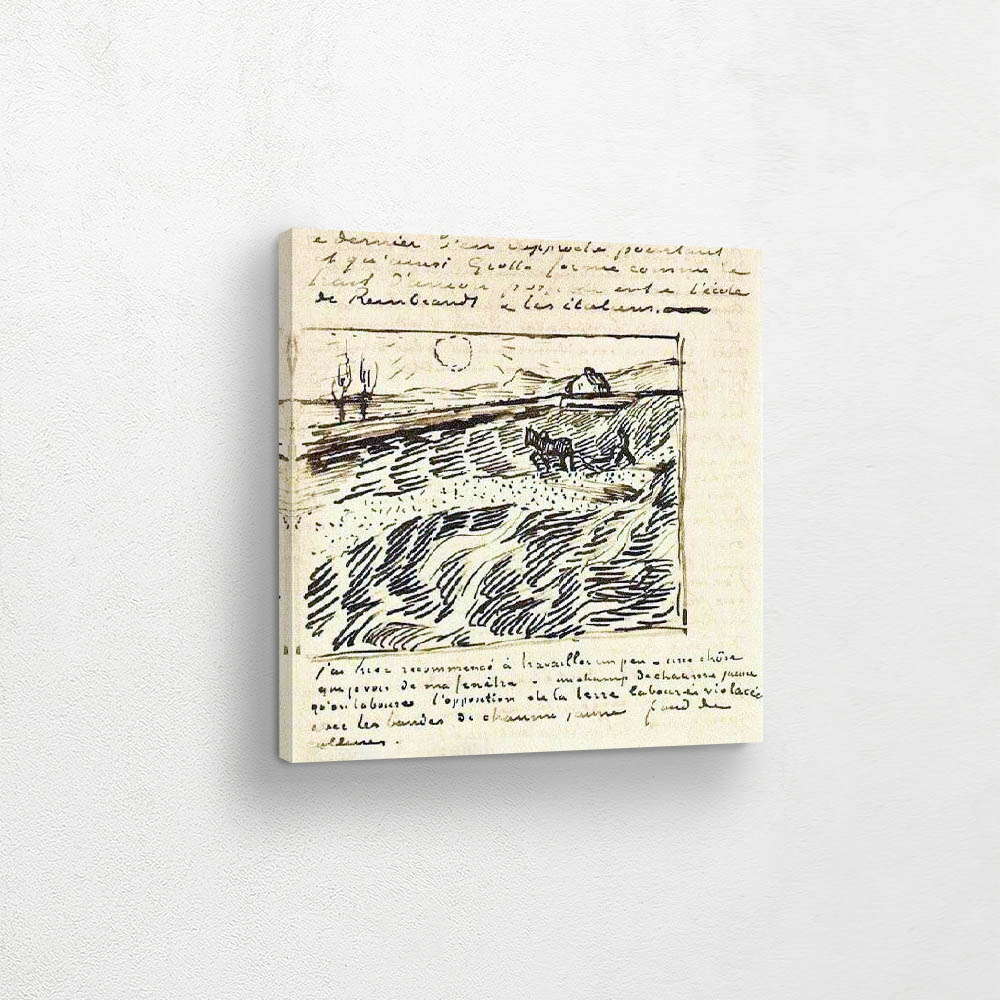 e dernier s'en rapproche pourtant
et qu'ainsi Giotto forme comme le
trait d'union entre l'école
de Rembrandt & les italiens.
j'ai hier recommencé à travailler un peu – une chôse
que je vois de ma fenêtre – un champ de chaume jaune
qu'on laboure l'opposition de la terre labourée violacée
avec les bandes de chaume jaune fond de
collines.